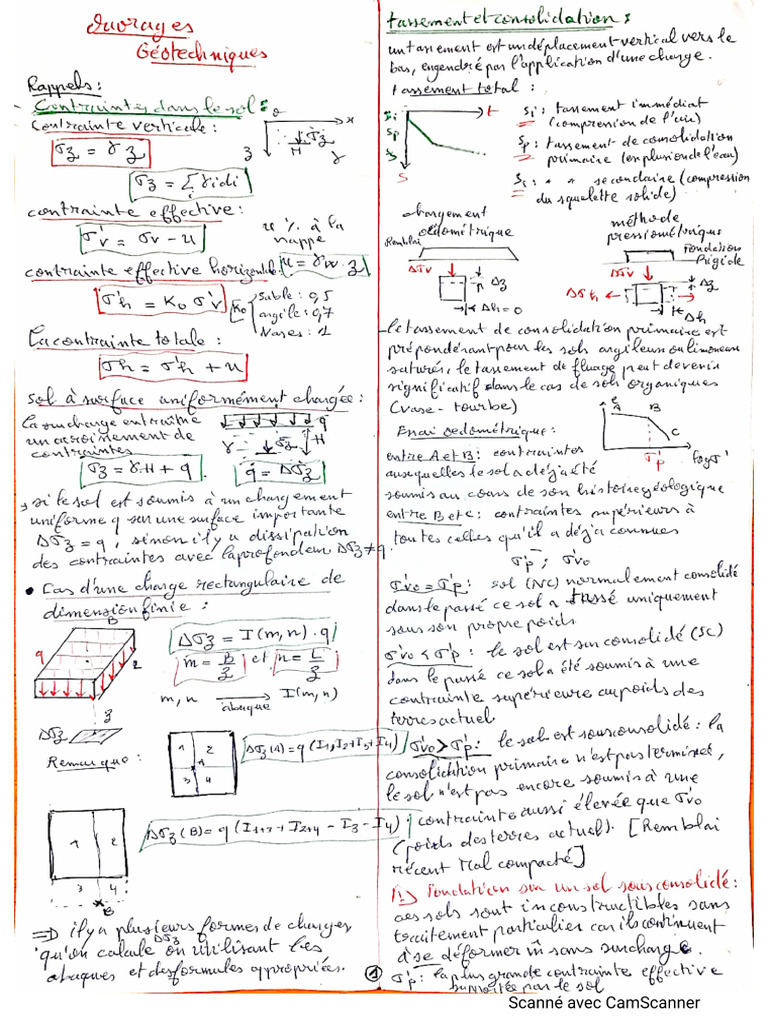 Ouvrages
Géotechniques
Rappels :
Contraintes dans le sol :
Contrainte verticale :
σz = γ z
o x z y σz H
σz = Σ γi di
i
contrainte effective :
σ'v = σv - u
u % à la
nappe
u = γw . z
contrainte effective horizontale :
σ'h = K0 σ'v
K0
Sable : 0,5
argile : 0,7
Vases : 1
La contrainte totale :
σh = σ'h + u
sol à surface uniformément chargée :
la surcharge entraîne
un accroissement de
contraintes
q γ σz H
σz = γH + q
q = Δσz
si le sol est soumis à un chargement
uniforme q sur une surface importante
Δσz = q, sinon il y a dissipation
des contraintes avec la profondeur Δσz ≠ q.
• Cas d'une charge rectangulaire de
dimension finie :
B
q
L
z
Δσz
Δσz = I(m, n) . q
m = B/z et n = L/z
m, n → I(m, n)
abaque
Remarque :
1 2
A
3 4
Δσz (A) = q (I1+I2+I3+I4)
1 2
3 4
B
Δσz (B) = q (I1+3 + I2+4 - I3 - I4)
=> il y a plusieurs formes de charges
qu'on calcule Δσz en utilisant les
abaques et des formules appropriées.
1
tassement et consolidation :
un tassement est un déplacement vertical vers le
bas, engendré par l'application d'une charge.
tassement total :
Si
Sp
Ss
t
S
Si : tassement immédiat
(compression de l'air)
Sp : tassement de consolidation
primaire (expulsion de l'eau)
Si : " " secondaire (compression
du squelette solide)
chargement
oedométrique
Remblai
Δσv
Δz
Δh = 0
méthode
pressiométrique
Fondation
Rigide
Δσv
Δσh
Δz
Δh
- le tassement de consolidation primaire est
prépondérant pour les sols argileux ou limoneux
saturés ; le tassement de fluage peut devenir
significatif dans le cas de sols organiques
(vase - tourbe)
Essai oedométrique :
e A B C
σ'p log σ'
entre A et B : contraintes
auxquelles le sol a déjà été
soumis au cours de son histoire géologique
entre B et C : contraintes supérieurs à
toutes celles qu'il a déjà connues
σ'p ; σ'v0
σ'v0 = σ'p : sol (NC) normalement consolidé
dans le passé ce sol a tassé uniquement
sous son propre poids
σ'v0 < σ'p : le sol est surconsolidé (SC)
dans le passé ce sol a été soumis à une
contrainte supérieure au poids des
terres actuel
σ'v0 > σ'p : le sol est sousconsolidé : la
consolidation primaire n'est pas terminée,
le sol n'est pas encore soumis à une
contrainte aussi élevée que σ'v0
(poids des terres actuel). [Remblai
récent mal compacté]
Fondation sur un sol sous consolidé :
ces sols sont inconstructibles sans
traitement particulier car ils continuent
à se déformer m̂ sans surcharge.
σ'p : la plus grande contrainte effective
supportée par le sol
Scanné avec CamScanner